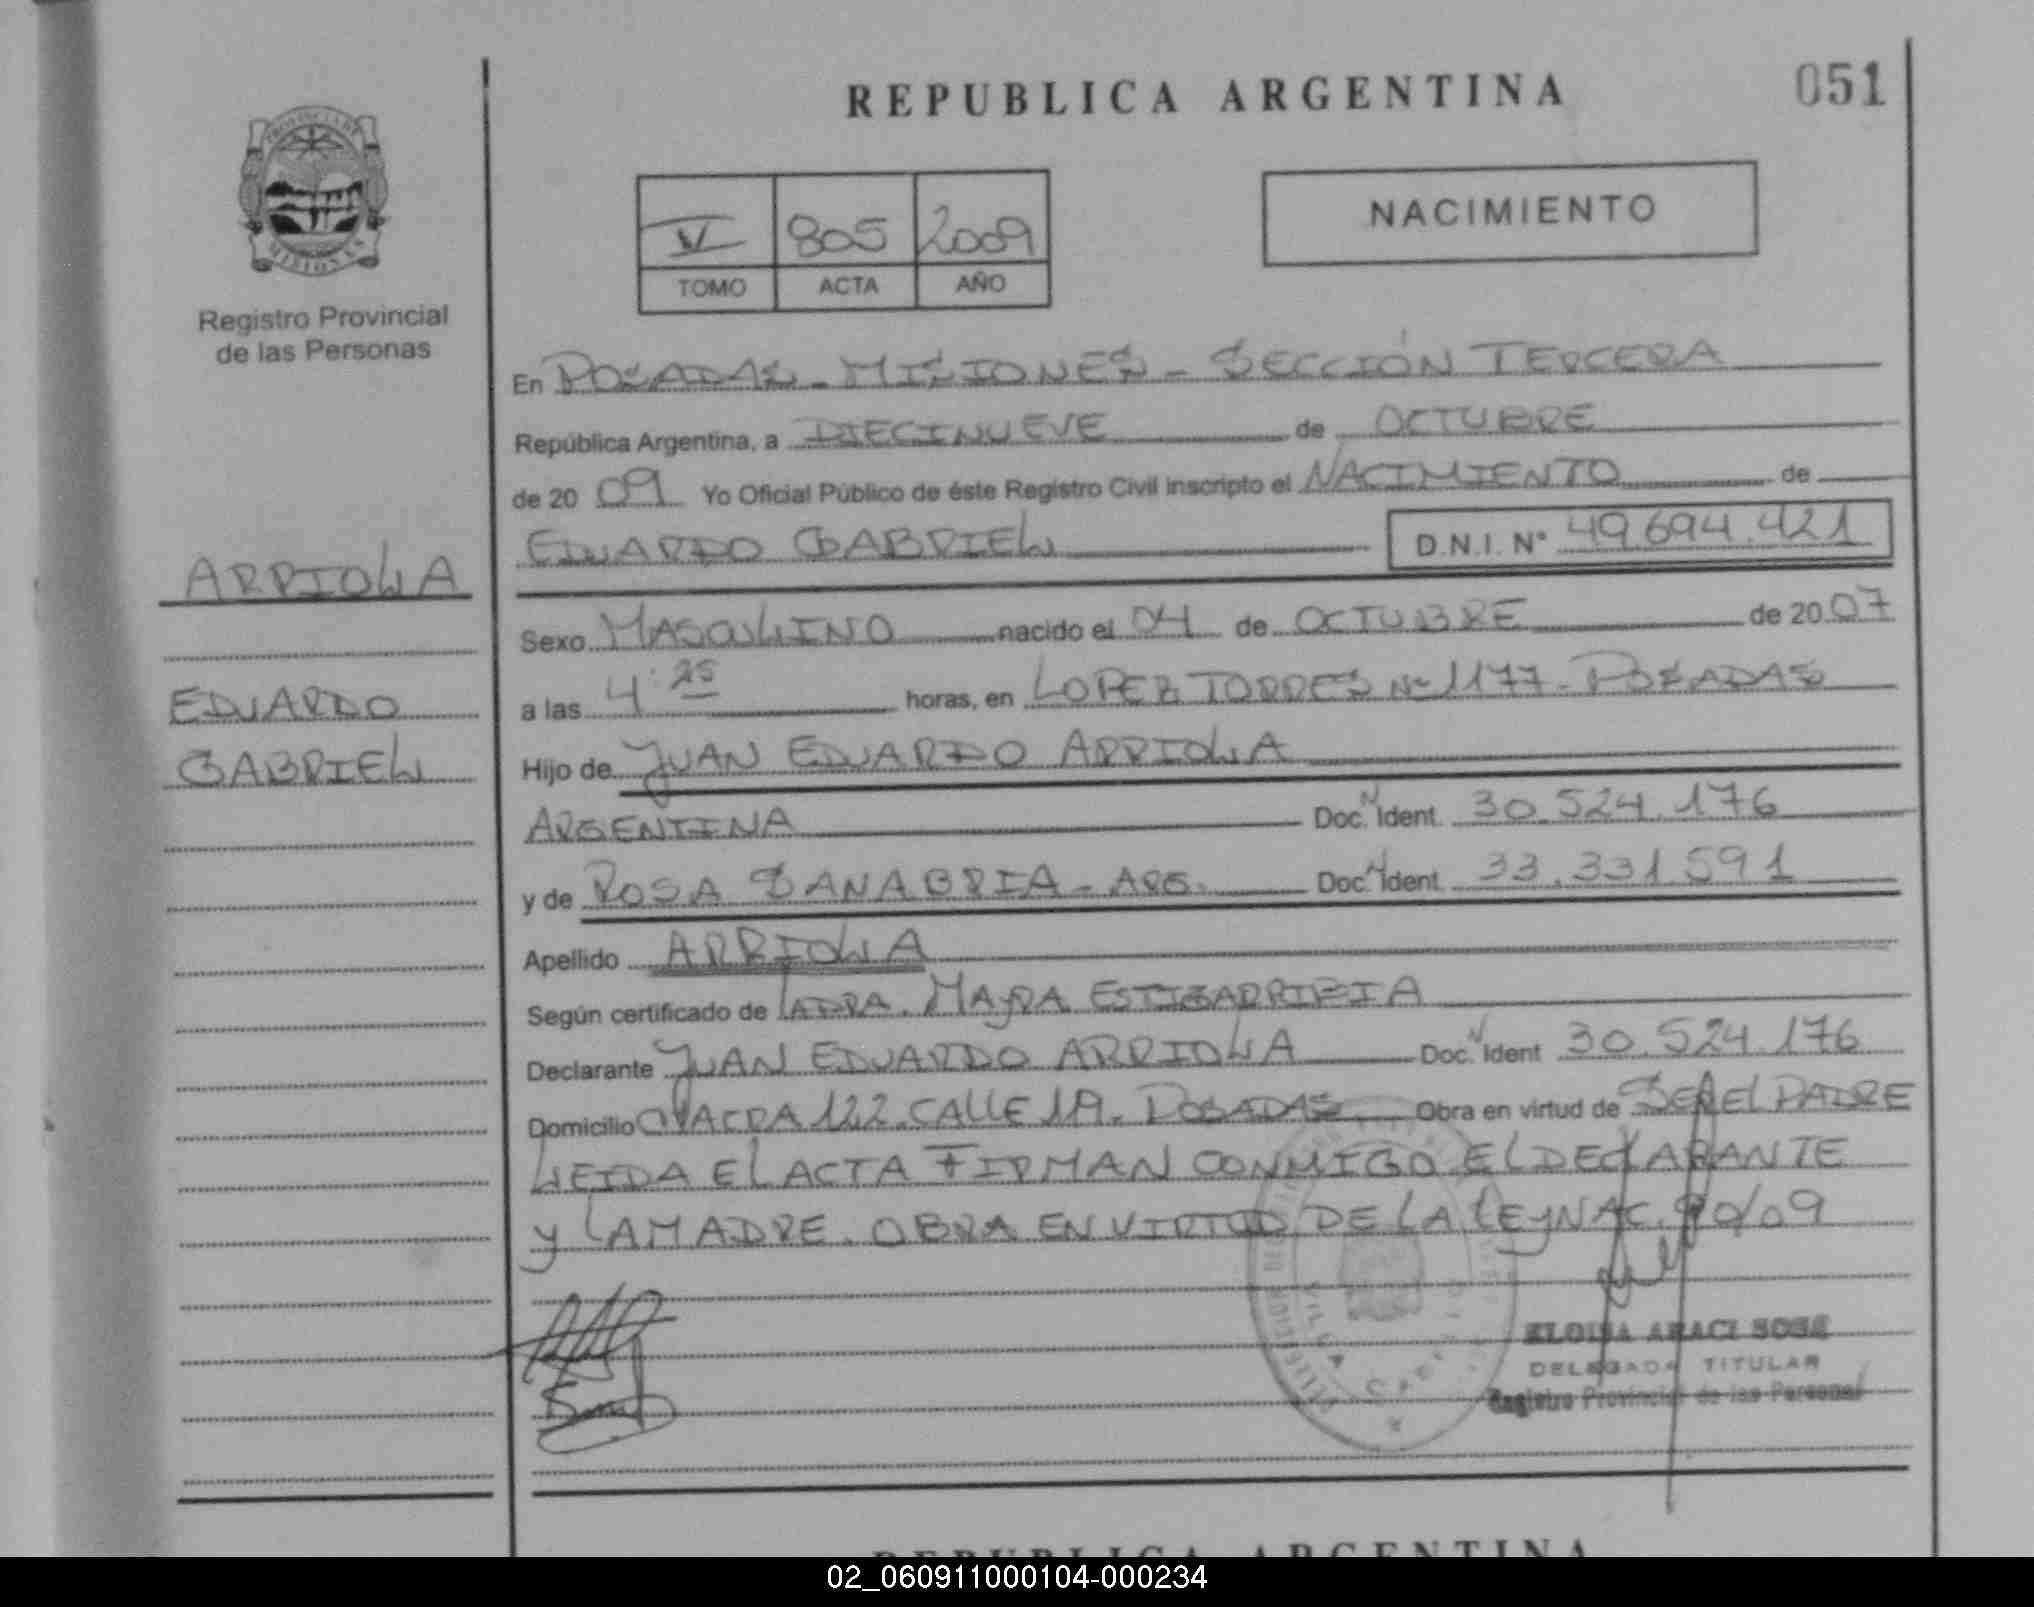 REPUBLICA ARGENTINA
051
PROVINCIA DE
MISIONES
Registro Provincial
de las Personas
V 805 2009
TOMO ACTA AÑO
NACIMIENTO
En POSADAS - MISIONES - SECCIÓN TERCERA
República Argentina, a DIECINUEVE de OCTUBRE
de 20 09 Yo Oficial Público de éste Registro Civil inscripto el NACIMIENTO de
EDUARDO GABRIEL D.N.I. Nº 49.694.421
ARRIOLA
EDUARDO
GABRIEL
Sexo MASCULINO nacido el 04 de OCTUBRE de 20 07
a las 4:25 horas, en LOPEZ TORRES Nº 1177 - POSADAS
Hijo de JUAN EDUARDO ARRIOLA
ARGENTINA Doc. N Ident 30.524.176
y de ROSA SANABRIA - ARG. Doc. N Ident 33.331.591
Apellido ARRIOLA
Según certificado de LA DRA. MAYRA ESTIGARRIBIA
Declarante JUAN EDUARDO ARRIOLA Doc. N Ident 30.524.176
Domicilio CHACRA 122. CALLE 19. POSADAS Obra en virtud de SER EL PADRE
LEIDA EL ACTA FIRMAN CONMIGO EL DECLARANTE
Y LA MADRE. OBRA EN VIRTUD DE LA LEY NAC. 90/09
ELOISA ARACI SOSE
DELEGADA TITULAR
Registro Provincial de las Personas
REPUBLICA ARGENTINA
02_060911000104-000234